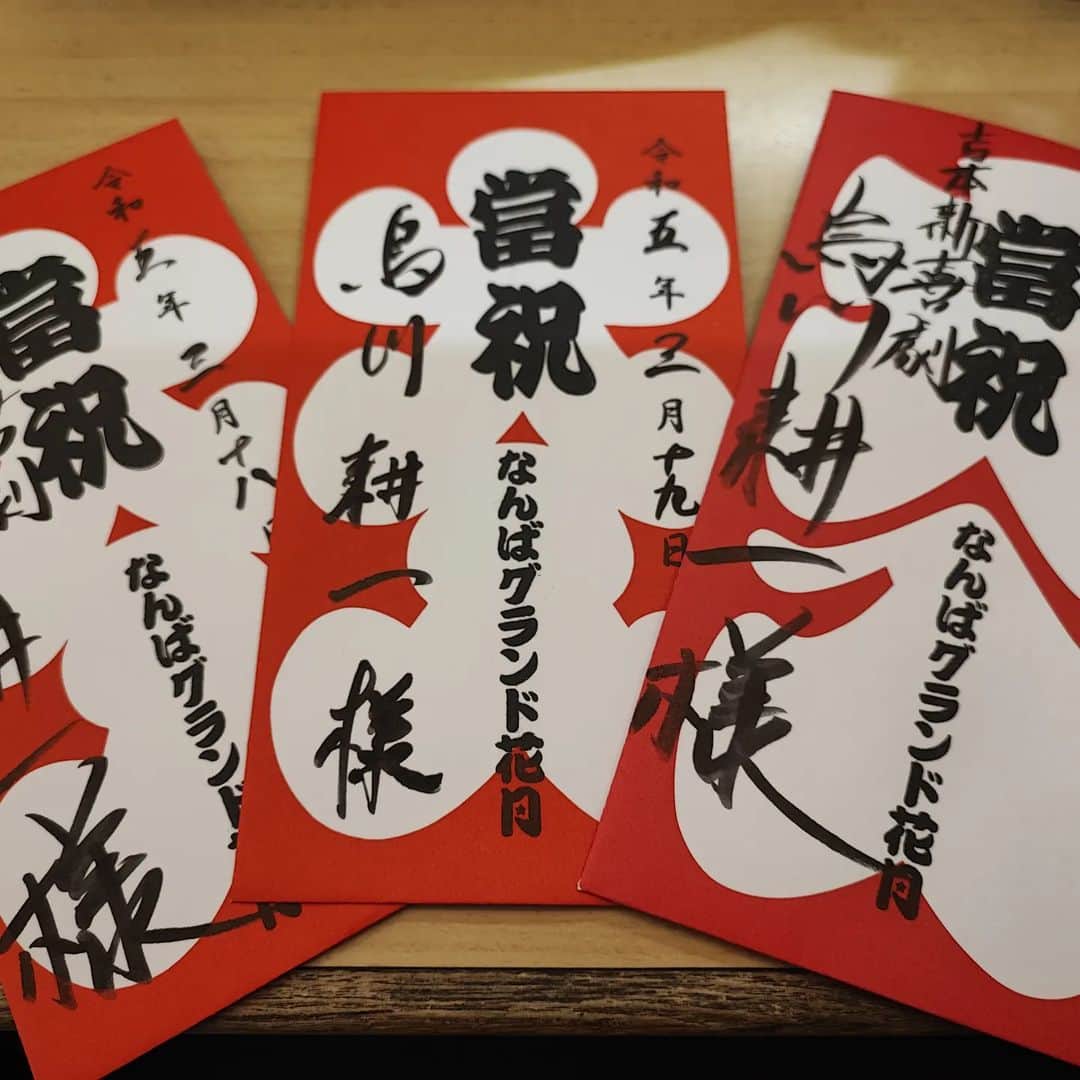 令和五年三月十八
當祝
なんばグランド
劇
一様
令和五年三月十九日
當祝
なんばグランド花月
烏川耕一様
當祝
なんばグランド花月
吉本新喜劇
烏川耕一様